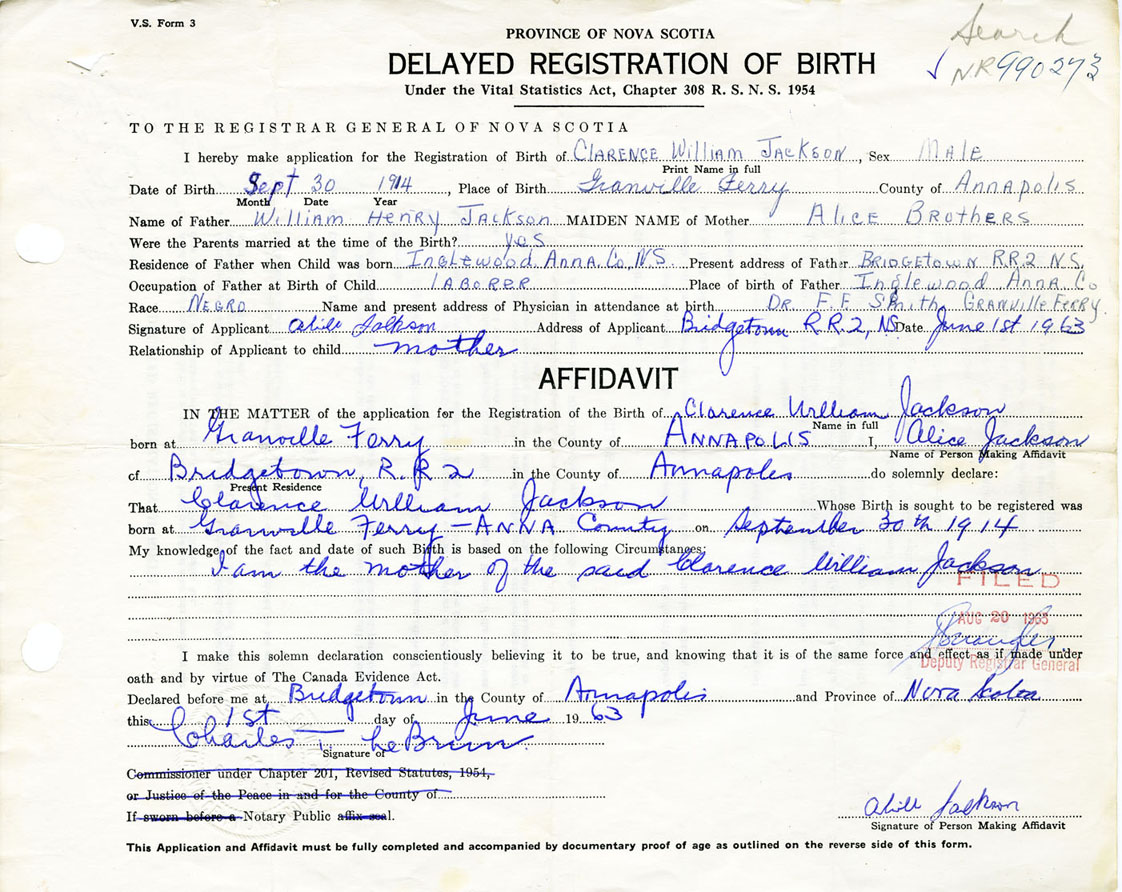 V.S. Form 3
PROVINCE OF NOVA SCOTIA
Search
DELAYED REGISTRATION OF BIRTH
NR990273
Under the Vital Statistics Act, Chapter 308 R. S. N. S. 1954
TO THE REGISTRAR GENERAL OF NOVA SCOTIA
I hereby make application for the Registration of Birth of CLARENCE William JACKSON, Sex MALE
Print Name in full
Date of Birth Sept 30 1914, Place of Birth Granville Ferry County of Annapolis
Month Date Year
Name of Father William Henry Jackson MAIDEN NAME of Mother ALICE BROTHERS
Were the Parents married at the time of the Birth? yes
Residence of Father when Child was born Inglewood Anna. Co, N.S. Present address of Father BRIDGETOWN R.R.2 N.S.
Occupation of Father at Birth of Child LABORER Place of birth of Father Inglewood Anna. Co
Race NEGRO Name and present address of Physician in attendance at birth DR. F. F. Smith, GRANVILLE FERRY.
Signature of Applicant Jackson Address of Applicant Bridgetown R.R.2, NS Date June 1st 1963
Relationship of Applicant to child mother
AFFIDAVIT
IN THE MATTER of the application for the Registration of the Birth of Clarence William Jackson
Name in full
born at Granville Ferry in the County of ANNAPOLIS I, Alice Jackson
Name of Person Making Affidavit
of Bridgetown, R.R 2 in the County of Annapolis do solemnly declare:
Present Residence
That Clarence William Jackson Whose Birth is sought to be registered was
born at Granville Ferry - ANNA County on September 30th 1914
My knowledge of the fact and date of such Birth is based on the following Circumstances:
I am the mother of the said Clarence William Jackson
FILED
AUG 20 1963
I make this solemn declaration conscientiously believing it to be true, and knowing that it is of the same force and effect as if made under
Deputy Registrar General
oath and by virtue of The Canada Evidence Act.
Declared before me at Bridgetown in the County of Annapolis and Province of Nova Scotia
this 1st day of June 1963
Charles T LeBrun
Signature of
Commissioner under Chapter 201, Revised Statutes, 1954,
or Justice of the Peace in and for the County of
If sworn before a Notary Public affix seal.
Jackson
Signature of Person Making Affidavit
This Application and Affidavit must be fully completed and accompanied by documentary proof of age as outlined on the reverse side of this form.